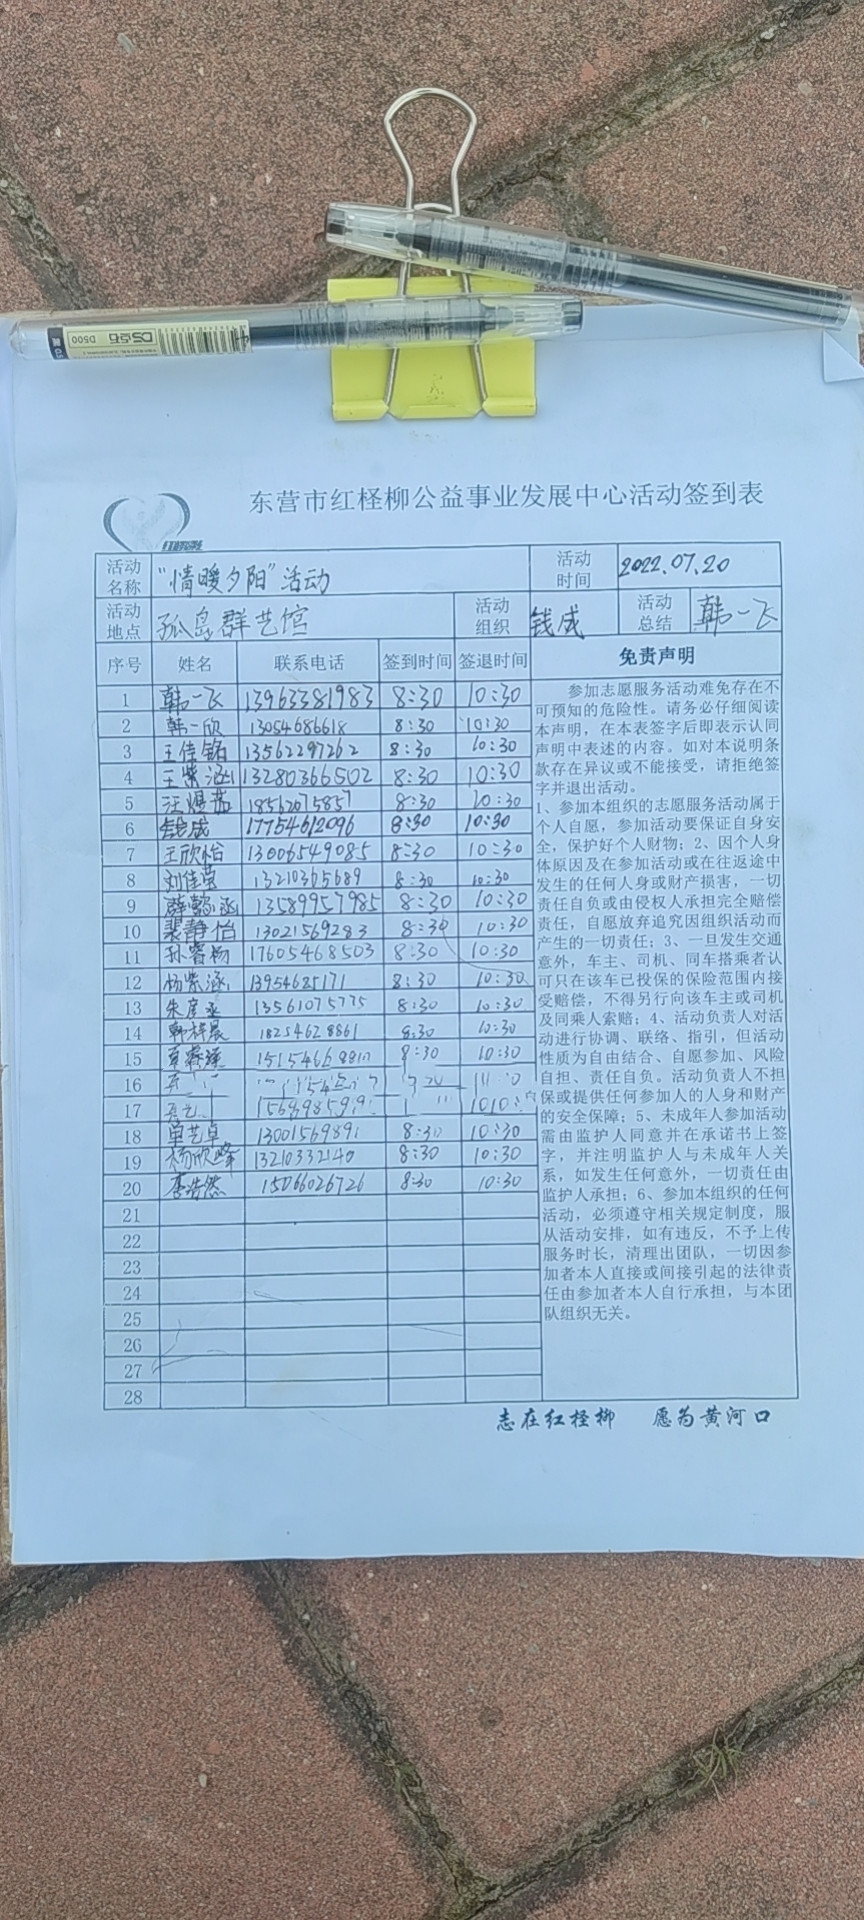 DS点石
D500
东营市红柽柳公益事业发展中心活动签到表
活动名称 “情暖夕阳”活动 活动时间 2022.07.20
活动地点 孤岛群艺馆 活动组织 钱成 活动总结 韩一飞
序号 姓名 联系电话 签到时间 签退时间 免责声明
1 韩一飞 13963381983 8:30 10:30
2 韩一欣 13054686618 8:30 10:30
3 王佳铭 13562297262 8:30 10:30
4 王紫涵 13280366502 8:30 10:30
5 18562075857 8:30 10:30
6 钱成 17754612096 8:30 10:30
7 王欣怡 13006549085 8:30 10:30
8 刘佳莹 13210365689 8:30 10:30
9 薛懿涵 13589957985 8:30 10:30
10 裴静怡 13021569283 8:30 10:30
11 孙睿杨 17605468503 8:30 10:30
12 杨紫涵 13954685171 8:30 10:30
13 朱彦丞 13561075775 8:30 10:30
14 韩梓晨 18254628861 8:30 10:30
15 8:30 10:30
16
17
18 单艺卓 13001569891 8:30 10:30
19 杨欣峰 13210332140 8:30 10:30
20 李浩然 15066026726 8:30 10:30
21
22
23
24
25
26
27
28
参加志愿服务活动难免存在不
可预知的危险性。请务必仔细阅读
本声明，在本表签字后即表示认同
声明中表述的内容。如对本说明条
款存在异议或不能接受，请拒绝签
字并退出活动。
1、参加本组织的志愿服务活动属于
个人自愿，参加活动要保证自身安
全，保护好个人财物；2、因个人身
体原因及在参加活动或在往返途中
发生的任何人身或财产损害，一切
责任自负或由侵权人承担完全赔偿
责任，自愿放弃追究因组织活动而
产生的一切责任；3、一旦发生交通
意外，车主、司机、同车搭乘者认
可只在该车已投保的保险范围内接
受赔偿，不得另行向该车主或司机
及同乘人索赔；4、活动负责人对活
动进行协调、联络、指引，但活动
性质为自由结合、自愿参加、风险
自担、责任自负。活动负责人不担
保或提供任何参加人的人身和财产
的安全保障；5、未成年人参加活动
需由监护人同意并在承诺书上签
字，并注明监护人与未成年人关
系，如发生任何意外，一切责任由
监护人承担；6、参加本组织的任何
活动，必须遵守相关规定制度，服
从活动安排，如有违反，不予上传
服务时长，清理出团队，一切因参
加者本人直接或间接引起的法律责
任由参加者本人自行承担，与本团
队组织无关。
志在红柽柳 愿为黄河口